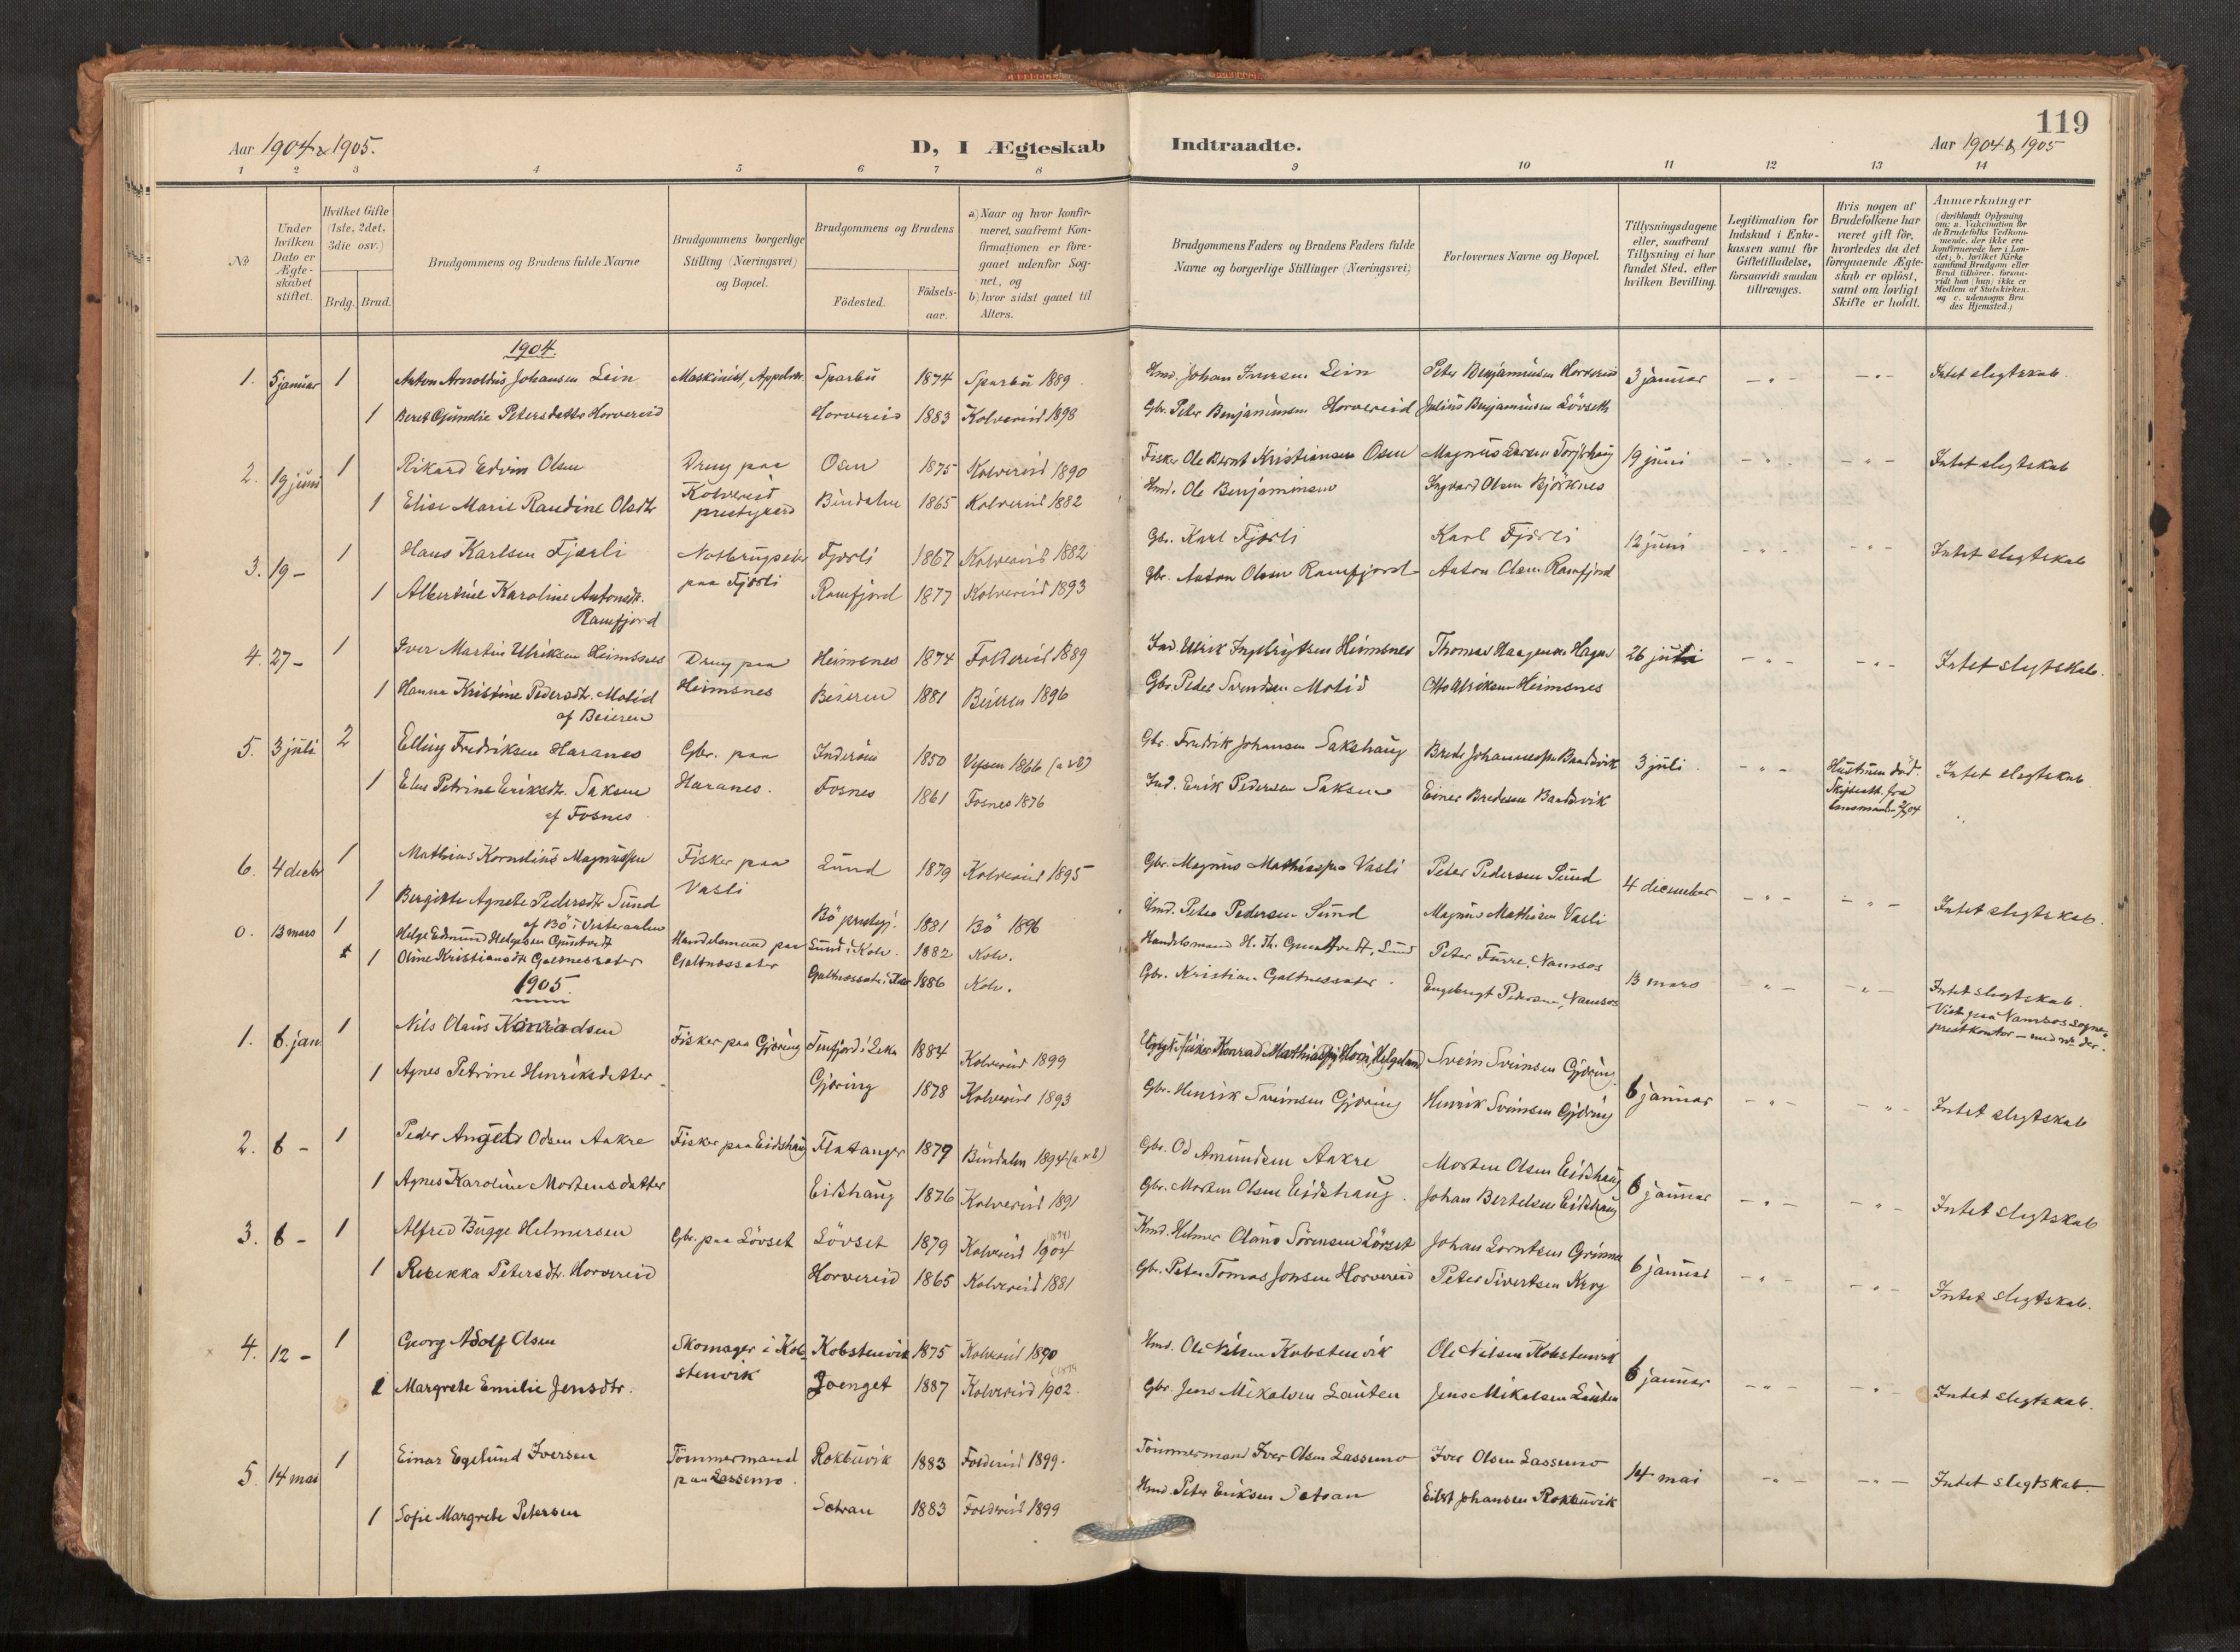 119
Aar 1904 & 1905.
D, I Ægteskab Indtraadte.
Aar 1904 & 1905
1 2 3 4 5 6 7 8 9 10 11 12 13 14
No
Under hvilken Dato er Ægteskabet stiftet.
Hvilket Gifte (1ste, 2det, 3die osv.)
Brdg. Brud.
Brudgommens og Brudens fulde Navne
Brudgommens borgerlige Stilling (Næringsvei) og Bopæl.
Brudgommens og Brudens
Födested.
Födsels-aar.
a) Naar og hvor konfirmeret, saafremt Konfirmationen er foregaaet udenfor Sognet, og
b) hvor sidst gaaet til Alters.
Brudgommens Faders og Brudens Faders fulde Navne og borgerlige Stillinger (Næringsvei)
Forlovernes Navne og Bopæl.
Tillysningsdagene eller, saafremt Tillysning ei har fundet Sted, efter hvilken Bevilling.
Legitimation for Indskud i Enkekassen samt for Giftetilladelse, forsaavidt saadan tiltrænges.
Hvis nogen af Brudefolkene har været gift för, hvorledes da det foregaaende Ægteskab er oplöst, samt om lovligt Skifte er holdt.
Anmerkninger (deriblandt Oplysning om: a. Vakcination for de Brudefolks Vedkommende, der ikke ere konfirmerede her i Landet; b. hvilket Kirkesamfund Brudgom eller Brud tilhörer, forsaavidt han (hun) ikke er Medlem af Statskirken, og c. udensogns Brudes Hjemsted.)
1904.
1. 5 januar 1 Anton Arnoldus Johansen Lein Maskinist, Sparbu 1874 Sparbu 1889. Hmd. Johan Iversen Lein Peter Benjaminsen Horvereid 3 januar – " – – " – Intet slegtskab.
1 Beret Petersdatter Horvereid Horvereid 1883 Kolvereid 1898 Gbr. Peter Benjaminsen Horvereid Julius Benjaminsen Lövseth
2. 19 juni 1 Rikard Edvin Olsen Dreng paa Osen 1875 Kolvereid 1890 Fisker Ole Bernt Kristiansen Osen Magnus Larsen 19 juni – " – – " – Intet slegtskab
1 Elise Marie Randine Olsdtr Kolvereid prestgaard Bindalen 1865 Kolvereid 1882 Hmd. Ole Benjaminsen Ingvard Olsen Björknes
3. 19 – 1 Hans Karlsen Fjærli paa Fjærli Fjærli 1867 Kolvereid 1882 Gbr. Karl Fjærli Karl Fjærli 12 juni – " – – " – Intet slegtskab
1 Albertine Karoline Antonsdtr. Ramfjord Ramfjord 1877 Kolvereid 1893 Gbr. Anton Olsen Ramfjord Anton Olsen Ramfjord
4. 27 – 1 Iver Martin Ulriksen Heimsnes Dreng paa Heimsnes Heimsnes 1874 Foldereid 1889 Ind. Ulrik Ingebrigtsen Heimsnes Thomas Haagensen Hagen 26 juni – " – – " – Intet slegtskab.
1 Hanna Kristine Pedersdtr. Molid af Beieren Beieren 1881 Beieren 1896 Gbr. Peder Svendsen Molid Otto Ulriksen Heimsnes
5. 3 juli 2 Elling Fredriksen Haranes Gbr. paa Haranes. Inderöen 1850 Vefsen 1866 (a & b) Gbr. Fredrik Johansen Sakshaug Brede Johannessen Bandsvik 3 juli. – " – Hustruen död. Skifteatt. fra Intet slegtskab
1 Elen Petrine Eriksdtr. Saksen af Fosnes Fosnes 1861 Fosnes 1876 Ind. Erik Pedersen Saksen Einer Bredesen Bandsvik
6. 4 decbr 1 Mathias Kornelius Magnussen Fisker paa Vasli Lund 1879 Kolvereid 1895 Gbr. Magnus Mathiassen Vasli Peter Pedersen Sund 4 december – " – – " – Intet slegtskab.
1 Bergitte Agnete Pedersdtr Sund af Bö i Vesteraalen Bö prestegj. 1881 Bö 1896 Hmd. Peter Pedersen Sund Magnus Mathisen Vasli
0. 13 mars 1 Helge Edmund Helgesen Handelsmand paa Galtnessæter Lund i Kolv. 1882 Kolv. Handelsmand H. Th. Lund Peter Furre, Namsos 13 mars – " – – " – Intet slegtskab.
1 Oline Kristiansdtr Galtnessæter Galtnessæter i Kolv 1886 Kolv. Gbr. Kristian Galtnessæter. Engebregt Pedersen, Namsos Viet paa Namsos sogneprestkontor – med nr. der.
1905.
1. 6. jan 1 Nils Olaus Konradsen Fisker paa Gjæring Terrfjord i Leka 1884 Kolvereid 1899 Konrad Mathiassen Horn, Helgeland Svein Sveinsen Gjæring 6 januar – " – – " – Intet slegtskab
1 Agnes Petrine Henriksdatter Gjæring 1878 Kolvereid 1893 Gbr. Henrik Sveinsen Gjæring Henrik Sveinsen Gjæring
2. 6 – 1 Peder Angel Odsen Aakre Fisker paa Eidshaug Flatanger 1879 Bindalen 1894 (a & b) Gbr. Od Amundsen Aakre Morten Olsen Eidshaug 6 januar – " – – " – Intet slegtskab
1 Agnes Karoline Mortensdatter Eidshaug 1876 Kolvereid 1891 Gbr. Morten Olsen Eidshaug. Johan Bertelsen Eidshaug
3. 6 – 1 Alfred Bugge Helmersen Gbr. paa Lövset Lövset 1879 Kolvereid 1904 Hmd. Helmer Olaus Sörensen Lövset Johan Lorntsen 6 januar – " – – " – Intet slegtskab.
1 Rebekka Petersdtr. Horvereid Horvereid 1865 Kolvereid 1881 Gbr. Peter Tomas Jonsen Horvereid Peter Sivertsen
4. 12 – 1 Georg Adolf Olsen Skomager i Kobstenvik Kobstenvik 1875 Kolvereid 1890 Hmd. Ole Nilsen Kobstenvik Ole Nilsen Kobstenvik 6 januar – " – – " – Intet slegtskab.
1 Margrete Emilie Jensdtr. 1887 Kolvereid 1902. Gbr. Jens Mikalsen Lauten Jens Mikalsen Lauten
5. 14 mai 1 Einar Egelund Iversen Tömmermand paa Lassemo. Rokbuvik 1883 Foldereid 1899. Tömmermand Iver Olsen Lassemo Iver Olsen Lassemo 14 mai – " – – " – Intet slegtskab
1 Sofie Margrete Petersen Setran 1883 Foldereid 1899 Hmd. Peter Eriksen Setran Eilert Johansen Rokbuvik